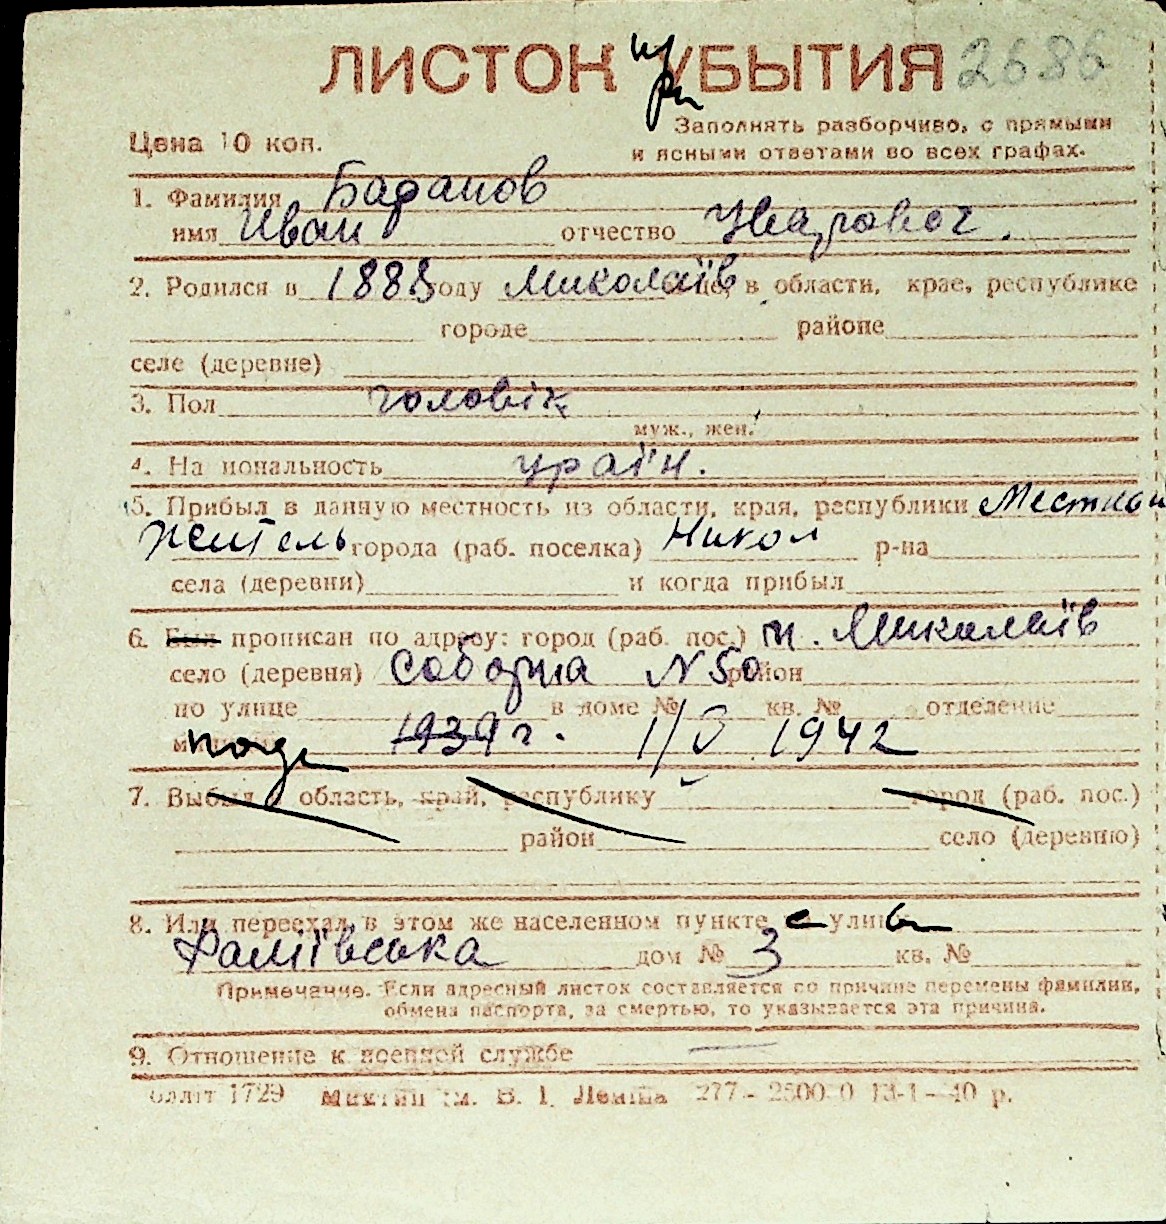 ЛИСТОК при УБЫТИЯ 2686
Цена 10 коп.
Заполнять разборчиво, с прямыми
и ясными ответами во всех графах.
1. Фамилия Баданов
имя Иван отчество Уварович.
2. Родился в 1888 году Миколаїв це, в области, крае, республике
городе районе
селе (деревне)
3. Пол чоловік
муж., жен.
4. На иональность україн.
5. Прибыл в данную местность из области, края, республики Местный
житель города (раб. поселка) Никол р-на
села (деревни) и когда прибыл
6. Был прописан по адресу: город (раб. пос.) м. Миколаїв
село (деревня) Соборна N 50. район
по улице в доме № кв. № отделение
1939 г. 1942
7. Выбыл в область, край, республику город (раб. пос.)
район село (деревню)
8. Или переехал в этом же населенном пункте с улицы
дом № 3 кв. №
Примечание. Если адресный листок составляется по причине перемены фамилии,
обмена паспорта, за смертью, то указывается эта причина.
9. Отношение к военной службе —
блліт 1729 Миктип ім. В. І. Леніна 277 - 2500 0 13-1-40 р.